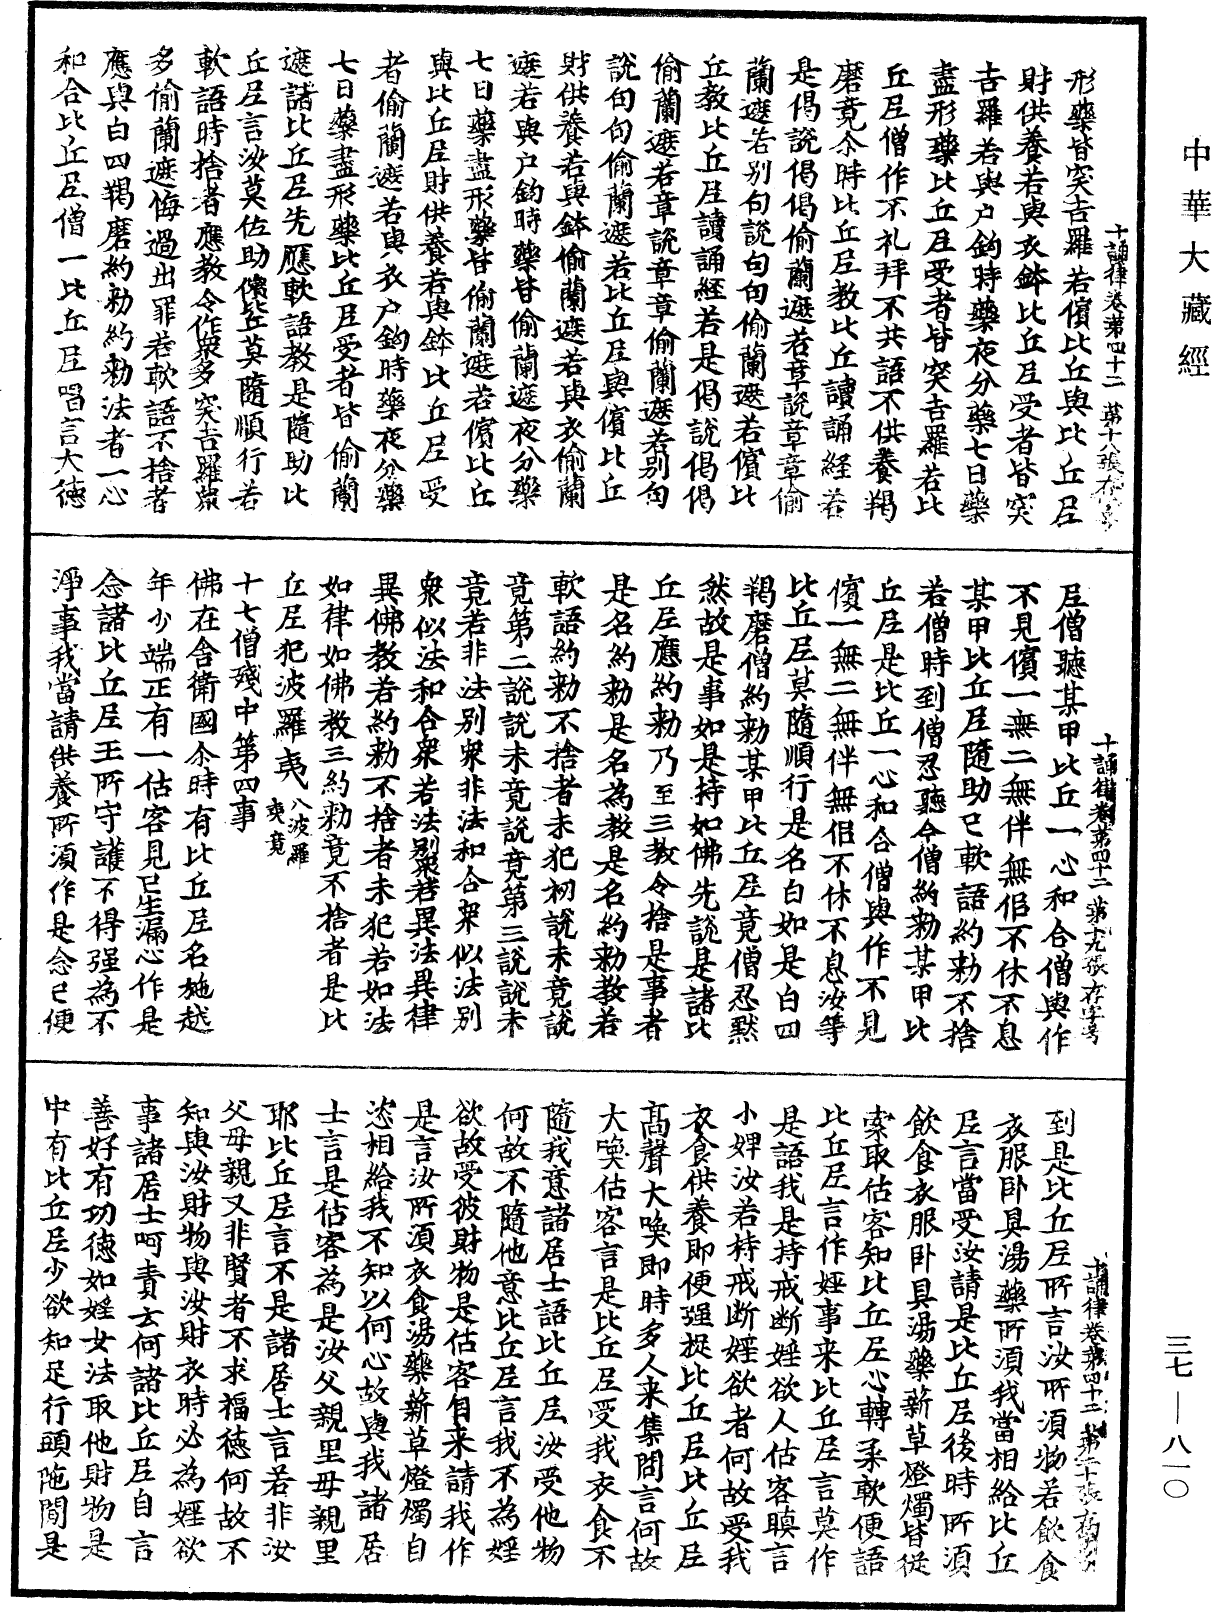 中華大藏經
十誦律卷第四十二 第十八張 存字号
形藥皆突吉羅若儐比丘與比丘尼
財供養若與衣鉢比丘尼受者皆突
吉羅若與户鉤時藥夜分藥七日藥
盡形藥比丘尼受者皆突吉羅若比
丘尼僧作不礼拜不共語不供養羯
磨竟尒時比丘尼教比丘讀誦経若
是偈說偈偈偷蘭遮若章說章章偷
蘭遮若別句說句句偷蘭遮若儐比
丘教比丘尼讀誦經若是偈說偈偈
偷蘭遮若章說章章偷蘭遮若別句
說句句偷蘭遮若比丘尼與儐比丘
財供養若與鉢偷蘭遮若與衣偷蘭
遮若與户鉤時藥皆偷蘭遮夜分藥
七日藥盡形藥皆偷蘭遮若儐比丘
與比丘尼財供養若與鉢比丘尼受
者偷蘭遮若與衣户鉤時藥夜分藥
七日藥盡形藥比丘尼受者皆偷蘭
遮諸比丘尼先應軟語教是隨助比
丘尼言汝莫佐助儐比丘莫隨順行若
軟語時捨者應教令作衆多突吉羅衆
多偷蘭遮悔過出罪若軟語不捨者
應與白四羯磨約勑約勑法者一心
和合比丘尼僧一比丘尼唱言大德
十誦律卷第四十二 第十九張 存字号
尼僧聽某甲比丘一心和合僧與作
不見儐一無二無伴無侣不休不息
某甲比丘尼隨助已軟語約勑不捨
若僧時到僧忍聽今僧約勑某甲比
丘尼是比丘一心和合僧與作不見
儐一無二無伴無侣不休不息汝等
比丘尼莫隨順行是名白如是白四
羯磨僧約勑某甲比丘尼竟僧忍默
然故是事如是持如佛先說是諸比
丘尼應約勑乃至三教令捨是事者
是名約勑是名為教是名約勑教若
軟語約勑不捨者未犯初說未竟說
竟第二說說未竟說竟第三說說未
竟若非法別衆非法和合衆似法別
衆似法和合衆若法別衆若異法異律
異佛教若約勑不捨者未犯若如法
如律如佛教三約勑竟不捨者是比
丘尼犯波羅夷 八波羅夷竟
十七僧殘中第四事
佛在舍衛國尒時有比丘尼名施越
年少端正有一估客見已生漏心作是
念諸比丘尼王所守護不得强為不
淨事我當請供養所須作是念已便
十誦律卷第四十二 第二十張 存字号
到是比丘尼所言汝所須物若飲食
衣服卧具湯藥所須我當相給比丘
尼言當受汝請是比丘尼後時所須
飲食衣服卧具湯藥薪草燈燭皆從
索取估客知比丘尼心轉柔軟便語
比丘尼言作婬事来比丘尼言莫作
是語我是持戒断婬欲人估客瞋言
小婢汝若持戒断婬欲者何故受我
衣食供養即便强捉比丘尼比丘尼
髙聲大喚即時多人来集問言何故
大喚估客言是比丘尼受我衣食不
隨我意諸居士語比丘尼汝受他物
何故不隨他意比丘尼言我不為婬
欲故受彼財物是估客自来請我作
是言汝所須衣食湯藥薪草燈燭自
恣相給我不知以何心故與我諸居
士言是估客為是汝父親里母親里
耶比丘尼言不是諸居士言若非汝
父母親又非賢者不求福德何故不
知與汝財物與汝財衣時必為婬欲
事諸居士呵責云何諸比丘尼自言
善好有功德如婬女法取他財物是
中有比丘尼少欲知足行頭陁聞是
三七—八一〇